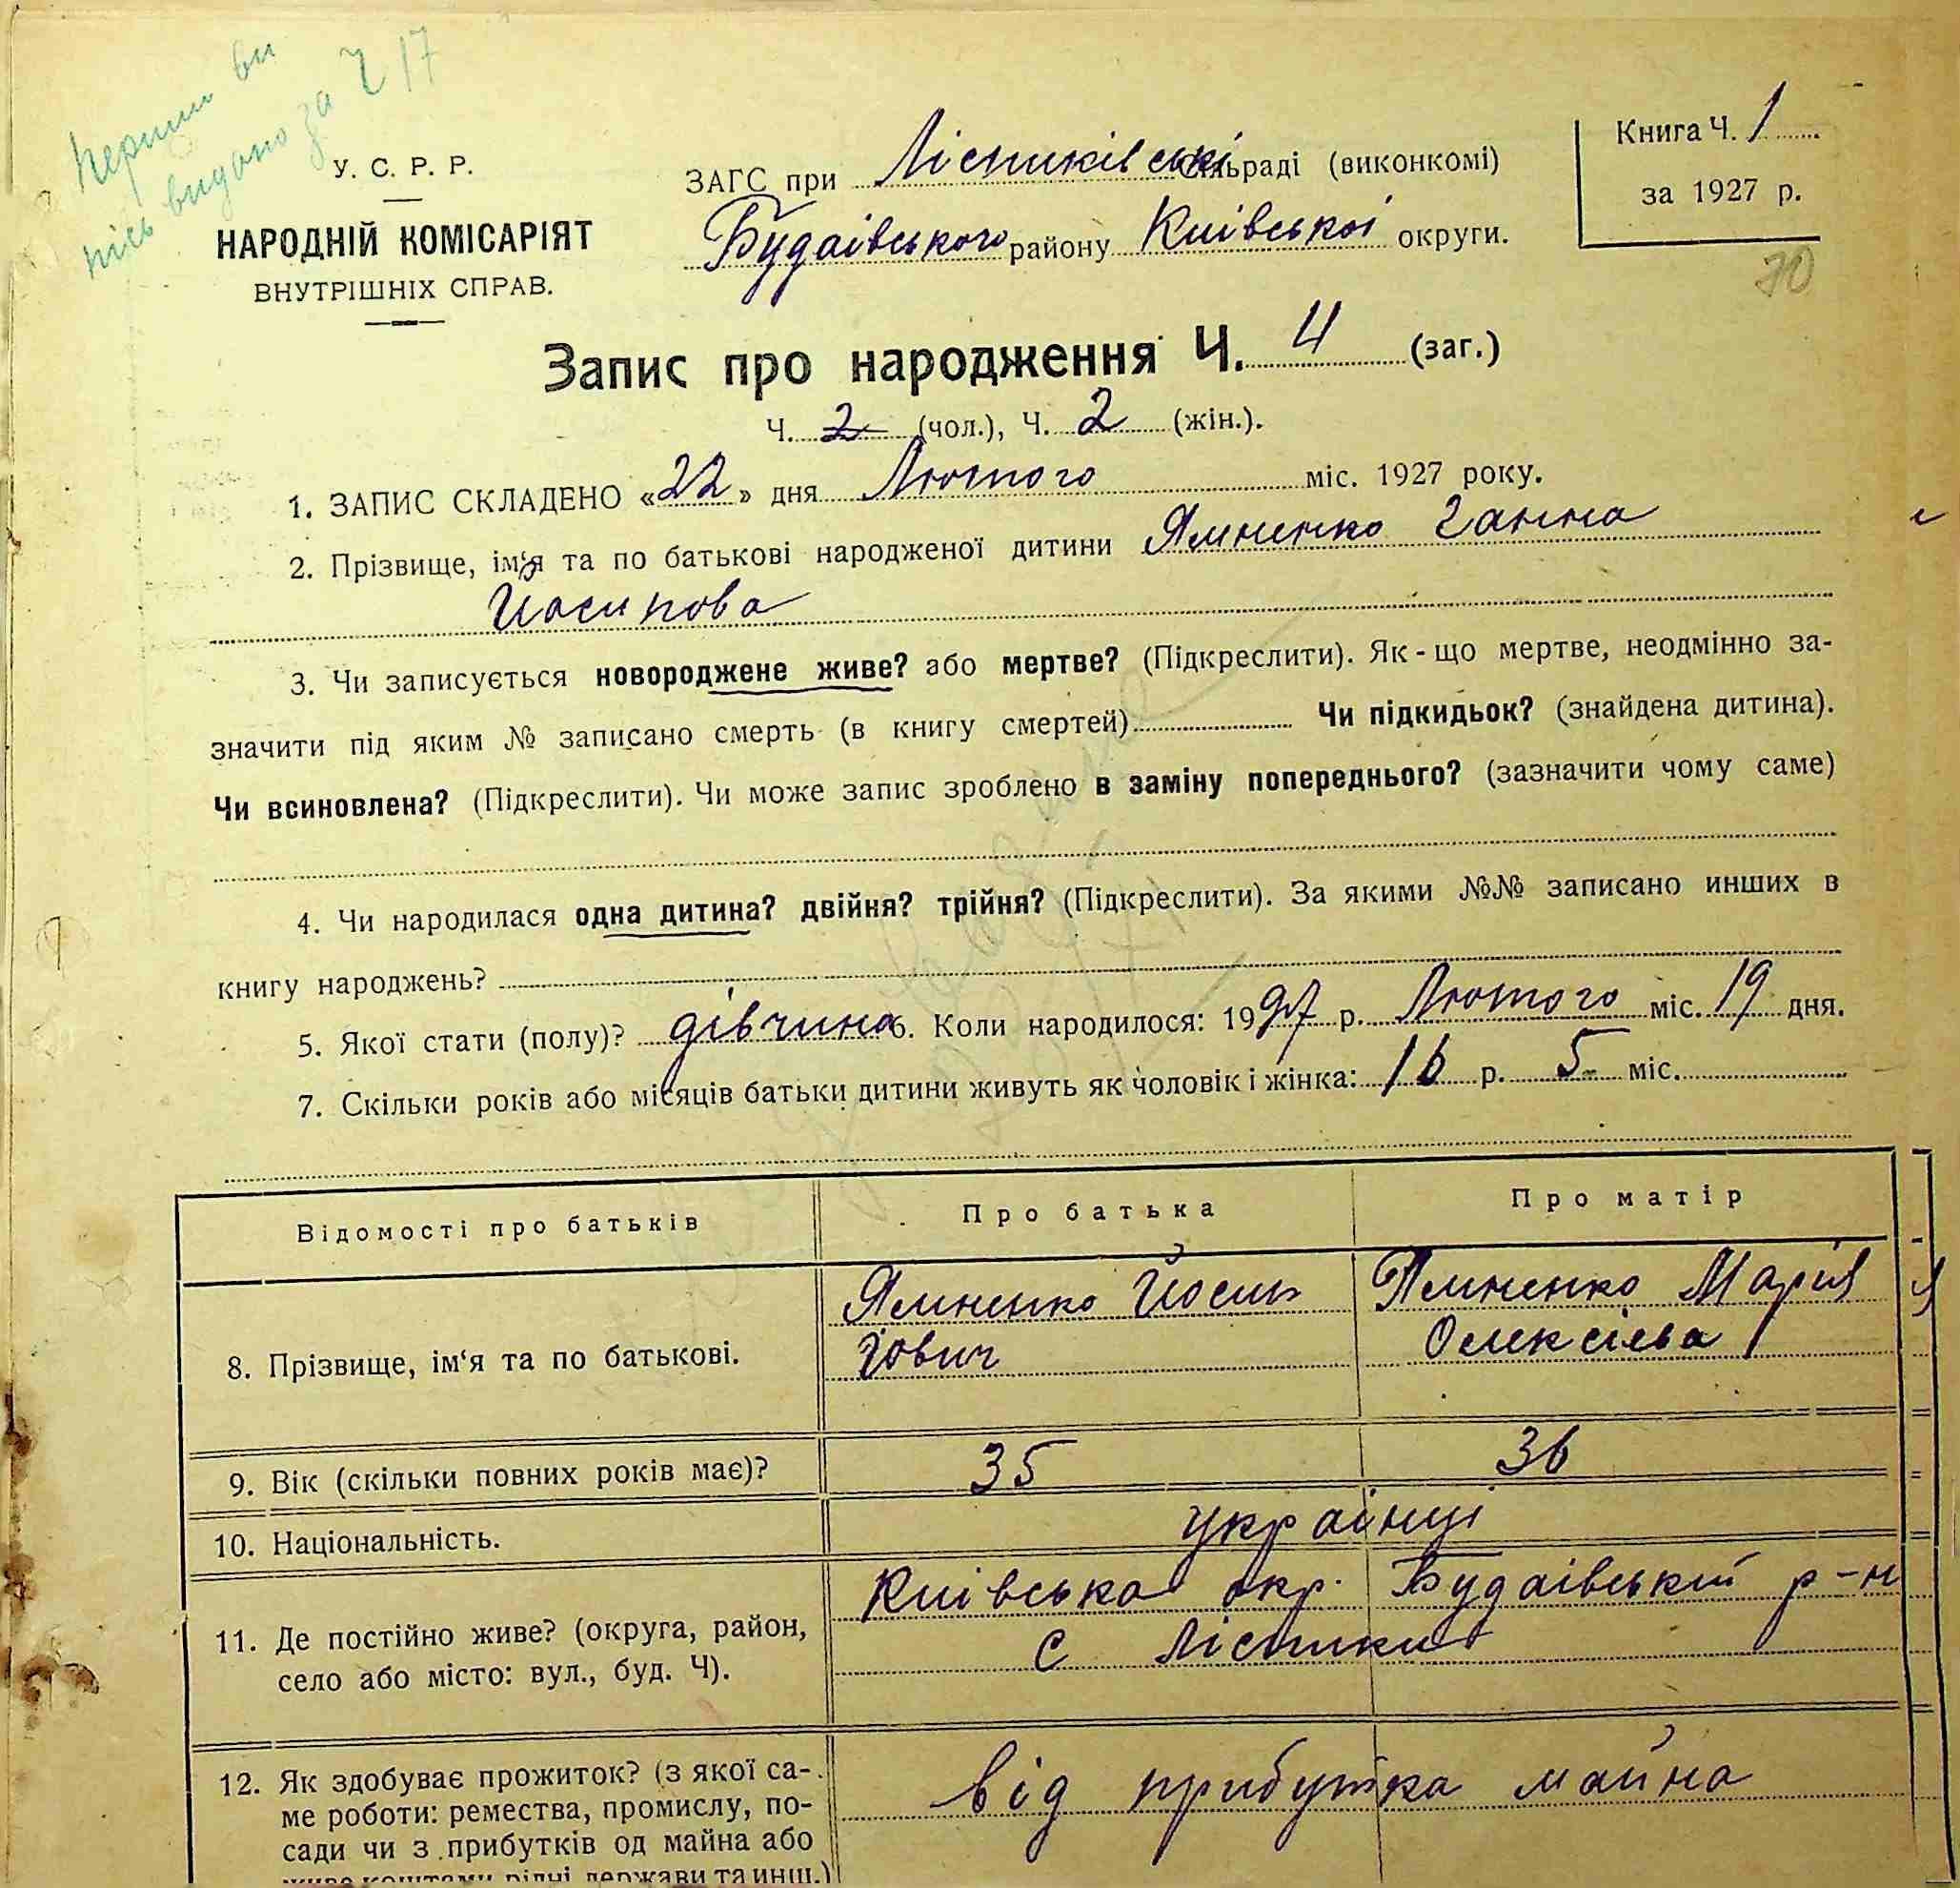 Перший ви
пись видано за Ч 17
У. С. Р. Р.
НАРОДНІЙ КОМІСАРІЯТ
ВНУТРІШНІХ СПРАВ.
ЗАГС при Лісниківські сільраді (виконкомі)
Будаівського району Київськоі округи.
Книга Ч. 1
за 1927 р.
70
Запис про народження Ч. 4 (заг.)
Ч. 2 (чол.), Ч. 2 (жін.).
1. ЗАПИС СКЛАДЕНО «22» дня Лютого міс. 1927 року.
2. Прізвище, ім'я та по батькові народженої дитини Ямненко Ганна
Йосипова
3. Чи записується новороджене живе? або мертве? (Підкреслити). Як-що мертве, неодмінно за-
значити під яким № записано смерть (в книгу смертей) Чи підкидьок? (знайдена дитина).
Чи всиновлена? (Підкреслити). Чи може запис зроблено в заміну попереднього? (зазначити чому саме)
4. Чи народилася одна дитина? двійня? трійня? (Підкреслити). За якими №№ записано инших в
книгу народжень?
5. Якої стати (полу)? дівчина 6. Коли народилося: 1927 р. Лютого міс. 19 дня.
7. Скільки років або місяців батьки дитини живуть як чоловік і жінка: 16 р. 5 міс.
Відомості про батьків Про батька Про матір
8. Прізвище, ім'я та по батькові.
Ямненко Йосип
Ямненко Марія
Олексієва
9. Вік (скільки повних років має)? 35 36
10. Національність. українці
11. Де постійно живе? (округа, район,
село або місто: вул., буд. Ч).
Київська окр. Будаівський р-н
с Лісники
12. Як здобуває прожиток? (з якої са-
ме роботи: ремества, промислу, по-
сади чи з прибутків од майна або
живе коштами рідні, держави та инш.)
від прибутка майна